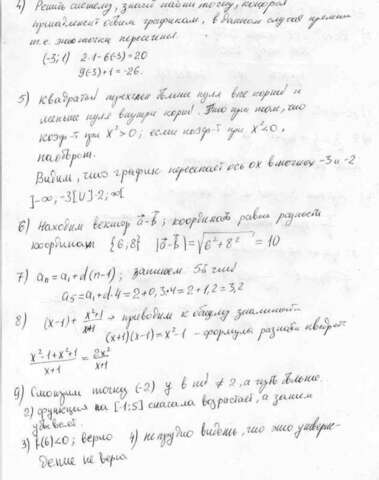 4) Решить систему, значит найти точку, которая
принадлежит обоим графикам, в данном случае прямым
т.е. это точка пересечения.
(-3; 1) 2·1-6(-3)=20
9(-3)+1=-26.
5) Квадратный трехчлен больше нуля вне корней и
меньше нуля внутри корней. Это при том, что
коэф-т при x²>0; если коэф-т при x²<0,
наоборот.
Видим, что график пересекает ось ox в точках -3 и -2
]-∞; -3[U]-2; ∞[
6) Находим вектор a-b; координаты равны разности
координат {6;8} |a-b|=√6²+8² = 10
7) aₙ=a₁+d(n-1); запишем 5й член
a₅=a₁+d·4=2+0,3·4=2+1,2=3,2
8) (x-1)+ x²+1/x+1 → приводим к общему знаменат.
(x+1)(x-1)=x²-1 - формула разности квадрат.
x²-1+x²+1/x+1 = 2x²/x+1
9) Смотрим точку (-2) у в ней ≠ 2, а чуть больше.
2) функция на [-1;5] сначала возрастает, а затем
убывает.
3) f(6)<0; верно 4) нетрудно видеть, что это утверж-
дение не верно